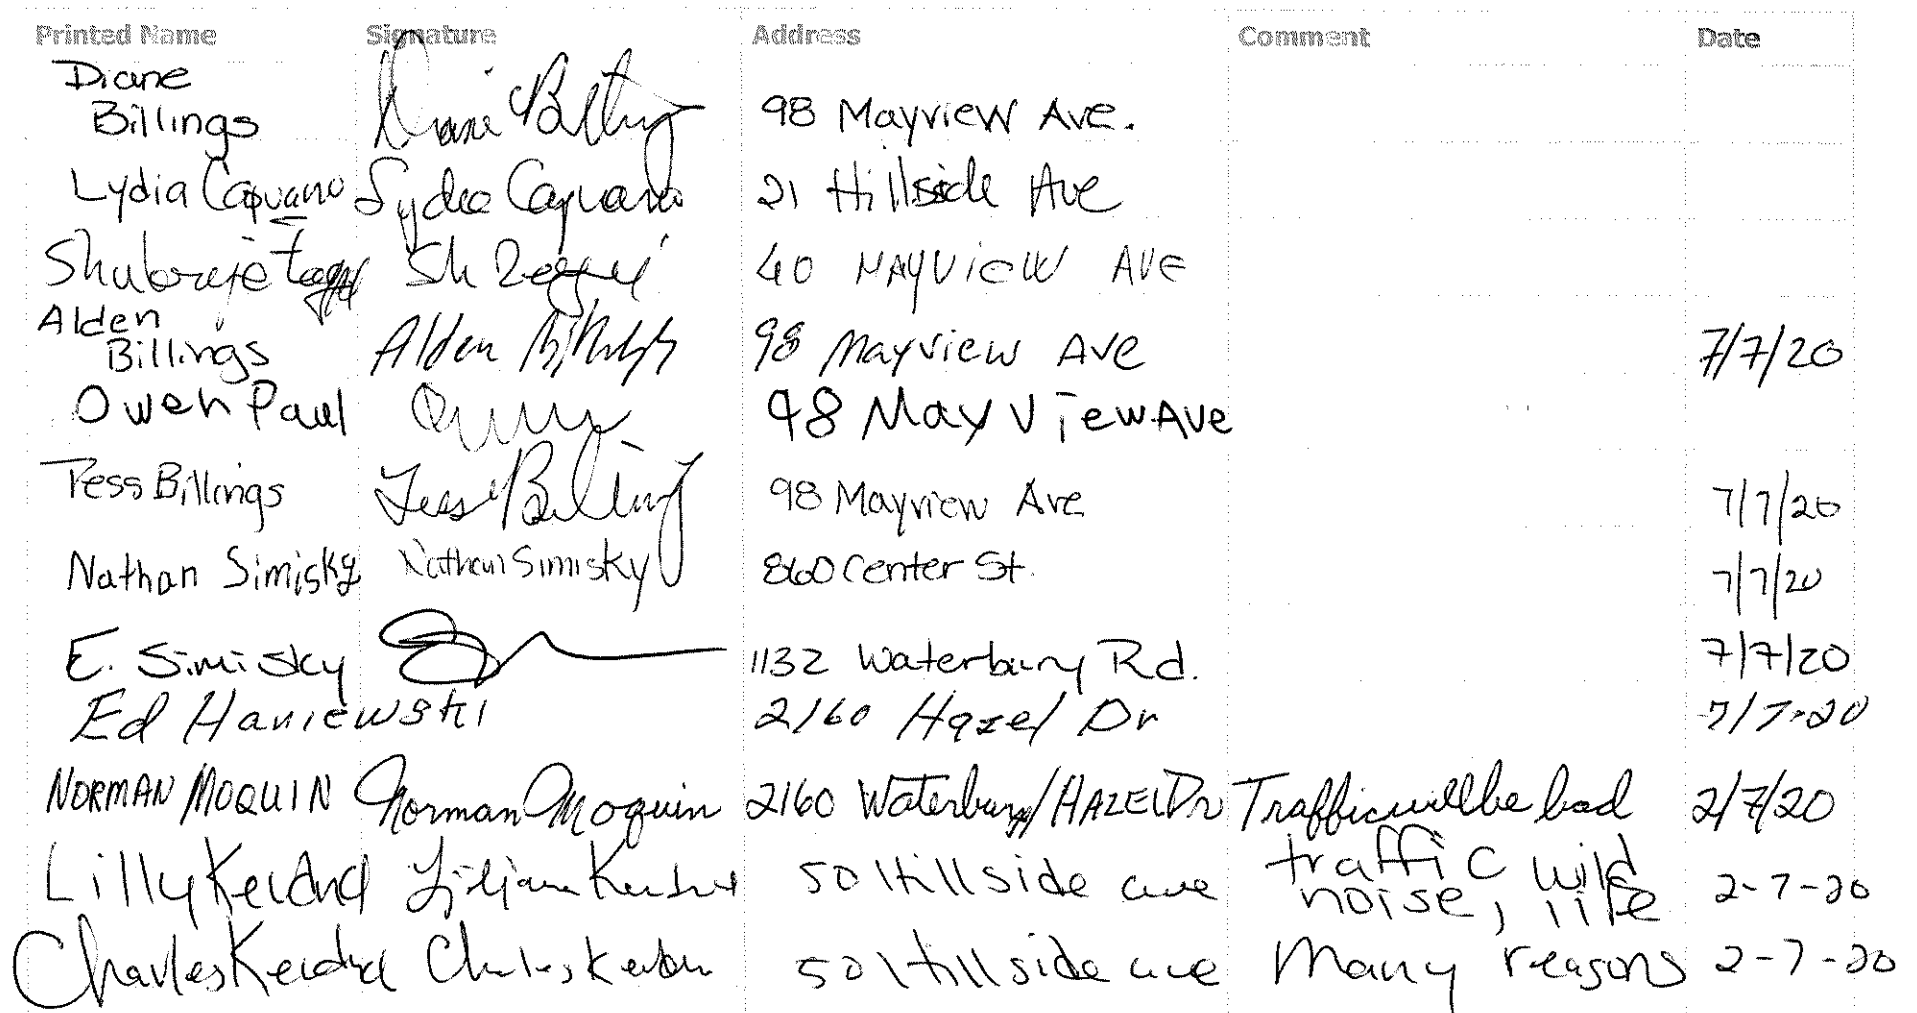 Printed Name Signature Address Comment Date
Diane
Billings Diane Billings 98 Mayview Ave.
Lydia Capuano Lydia Capuano 21 Hillside Ave
Sh 40 MAYVIEW AVE
Alden
Billings Alden Billings 98 Mayview Ave 7/7/20
Owen Paul 98 May View Ave
Tess Billings Tess Billings 98 Mayview Ave 7/7/20
Nathan Simisky Nathan Simisky 860 Center St. 7/7/20
E. Simisky 1132 Waterbury Rd. 7/7/20
Ed Haniewski 2160 Hazel Dr 7/7-20
NORMAN MOQUIN Norman Moquin 2160 Waterbury/HAZEL Dr Traffic will be bad 2/7/20
Lilly 50 Hillside ave traffic wild
noise, life 2-7-20
Charles Charles 50 Hillside ave Many reasons 2-7-20